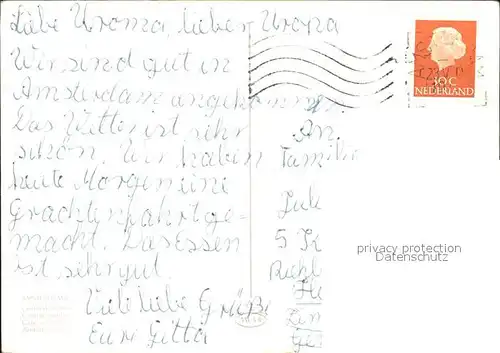 Liebe Uroma, lieber Uropa
Wir sind gut in
Amsterdam angekommen.
Das Wetter ist sehr
schön. Wir haben
heute Morgen eine
Grachtenfahrt ge-
macht. Das Essen
ist sehr gut.
Viele liebe Grüße
Eure Gitta
30 C
NEDERLAND
An
Familie
Jul
5 K
privacy protection
Datenschutz